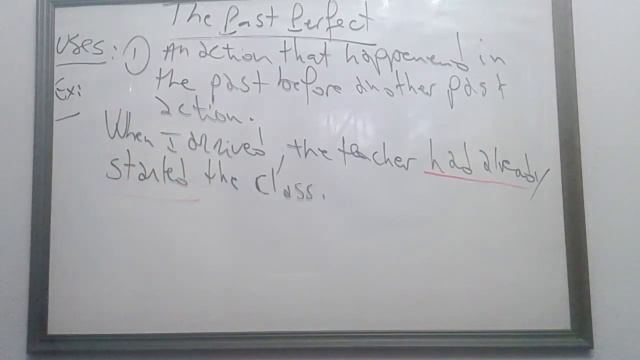 The Past Perfect
Uses: ① An action that happened in
the past before another past
action.
Ex:
When I arrived, the teacher had already
started the class.